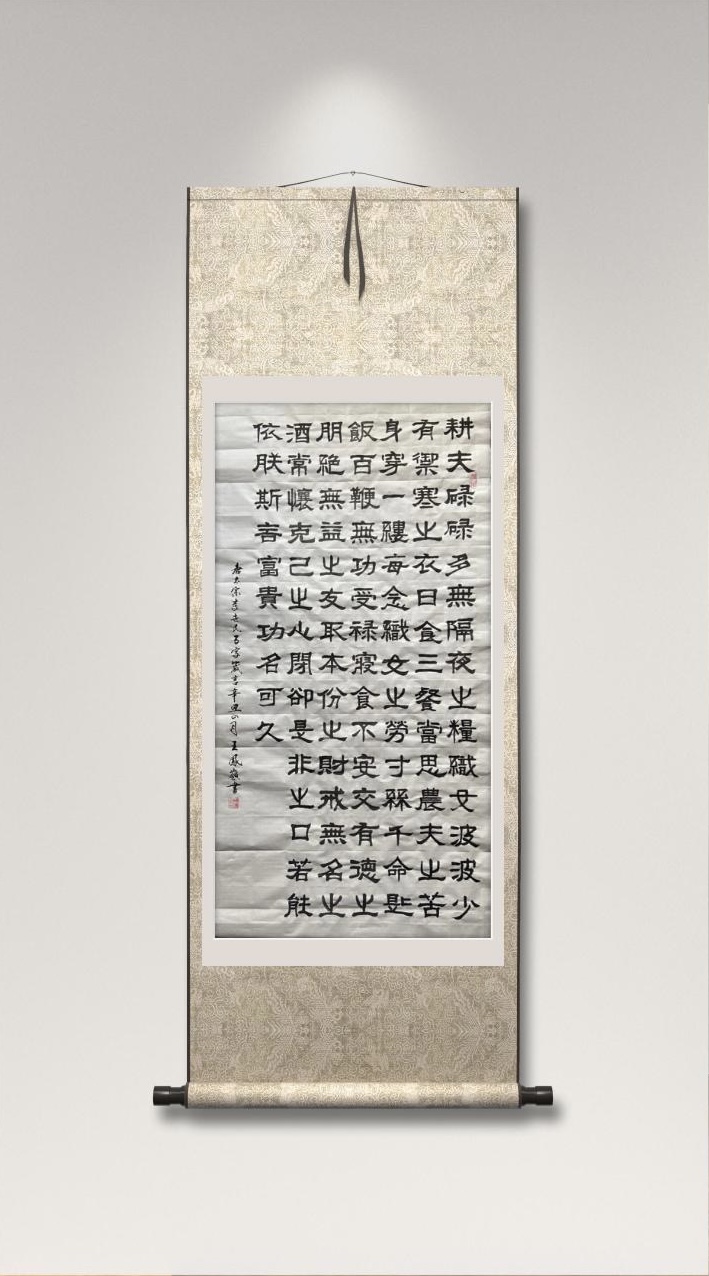 耕夫碌碌多無隔夜之糧織女波波少
有禦寒之衣日食三餐當思農夫之苦
身穿一縷每念織女之勞寸絲千命匙
飯百鞭無功受禄寢食不安交有德之
朋絶無益之友取本份之財戒無名之
酒常懷克己之心閉卻是非之口若能
依朕斯言富貴功名可久
唐太宗李世民百字箴言辛丑月王鳳書